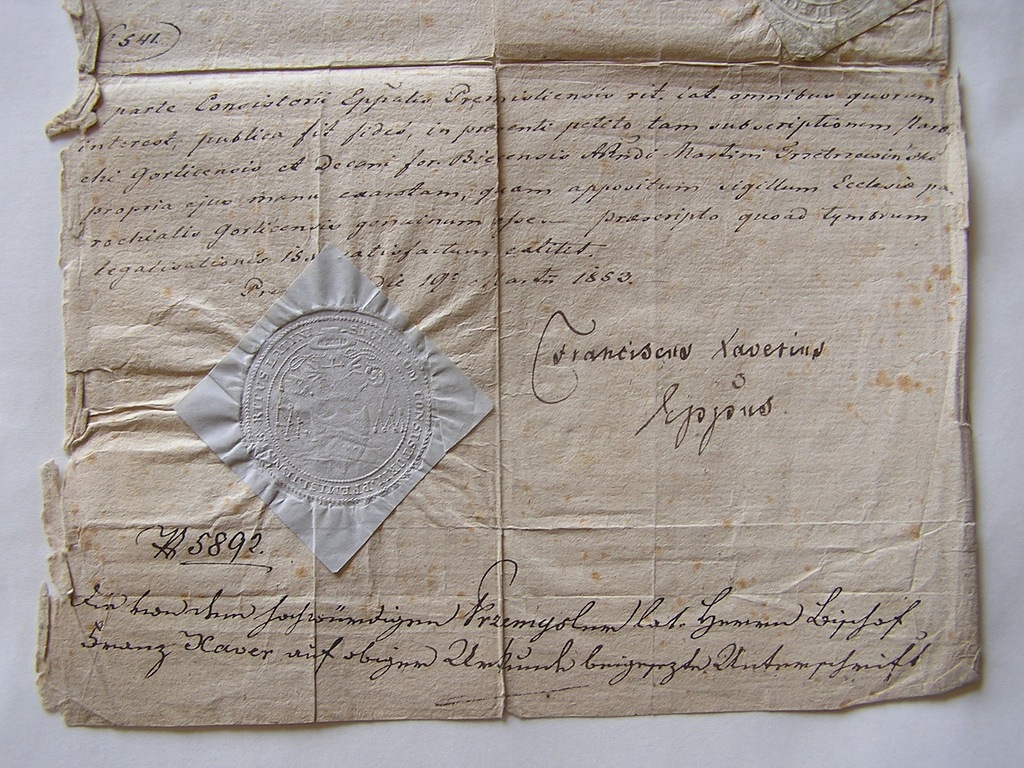 541.
parte Consistorii Eppalis Premisliensis rit. lat. omnibus quorum
interest, publica fit fides, in praesenti petito tam subscriptionem Paro
chi Gorlicensis et Decani for. Biecensis Martini
propria ejus manu exaratam, quam appositum sigillum Ecclesiae pa-
rochialis Gorlicensis genuinum esse praescripto quoad tymbrum
legalisationis satisfactum extitit.
die 19 Martii 1853.
Franciscus Xaverius
Eppus
N 5892.
Die von dem hochwürdigen Przemysler lat. Herrn Bischof
Franz Xaver auf obiger Urkunde beigesetzte Unterschrift